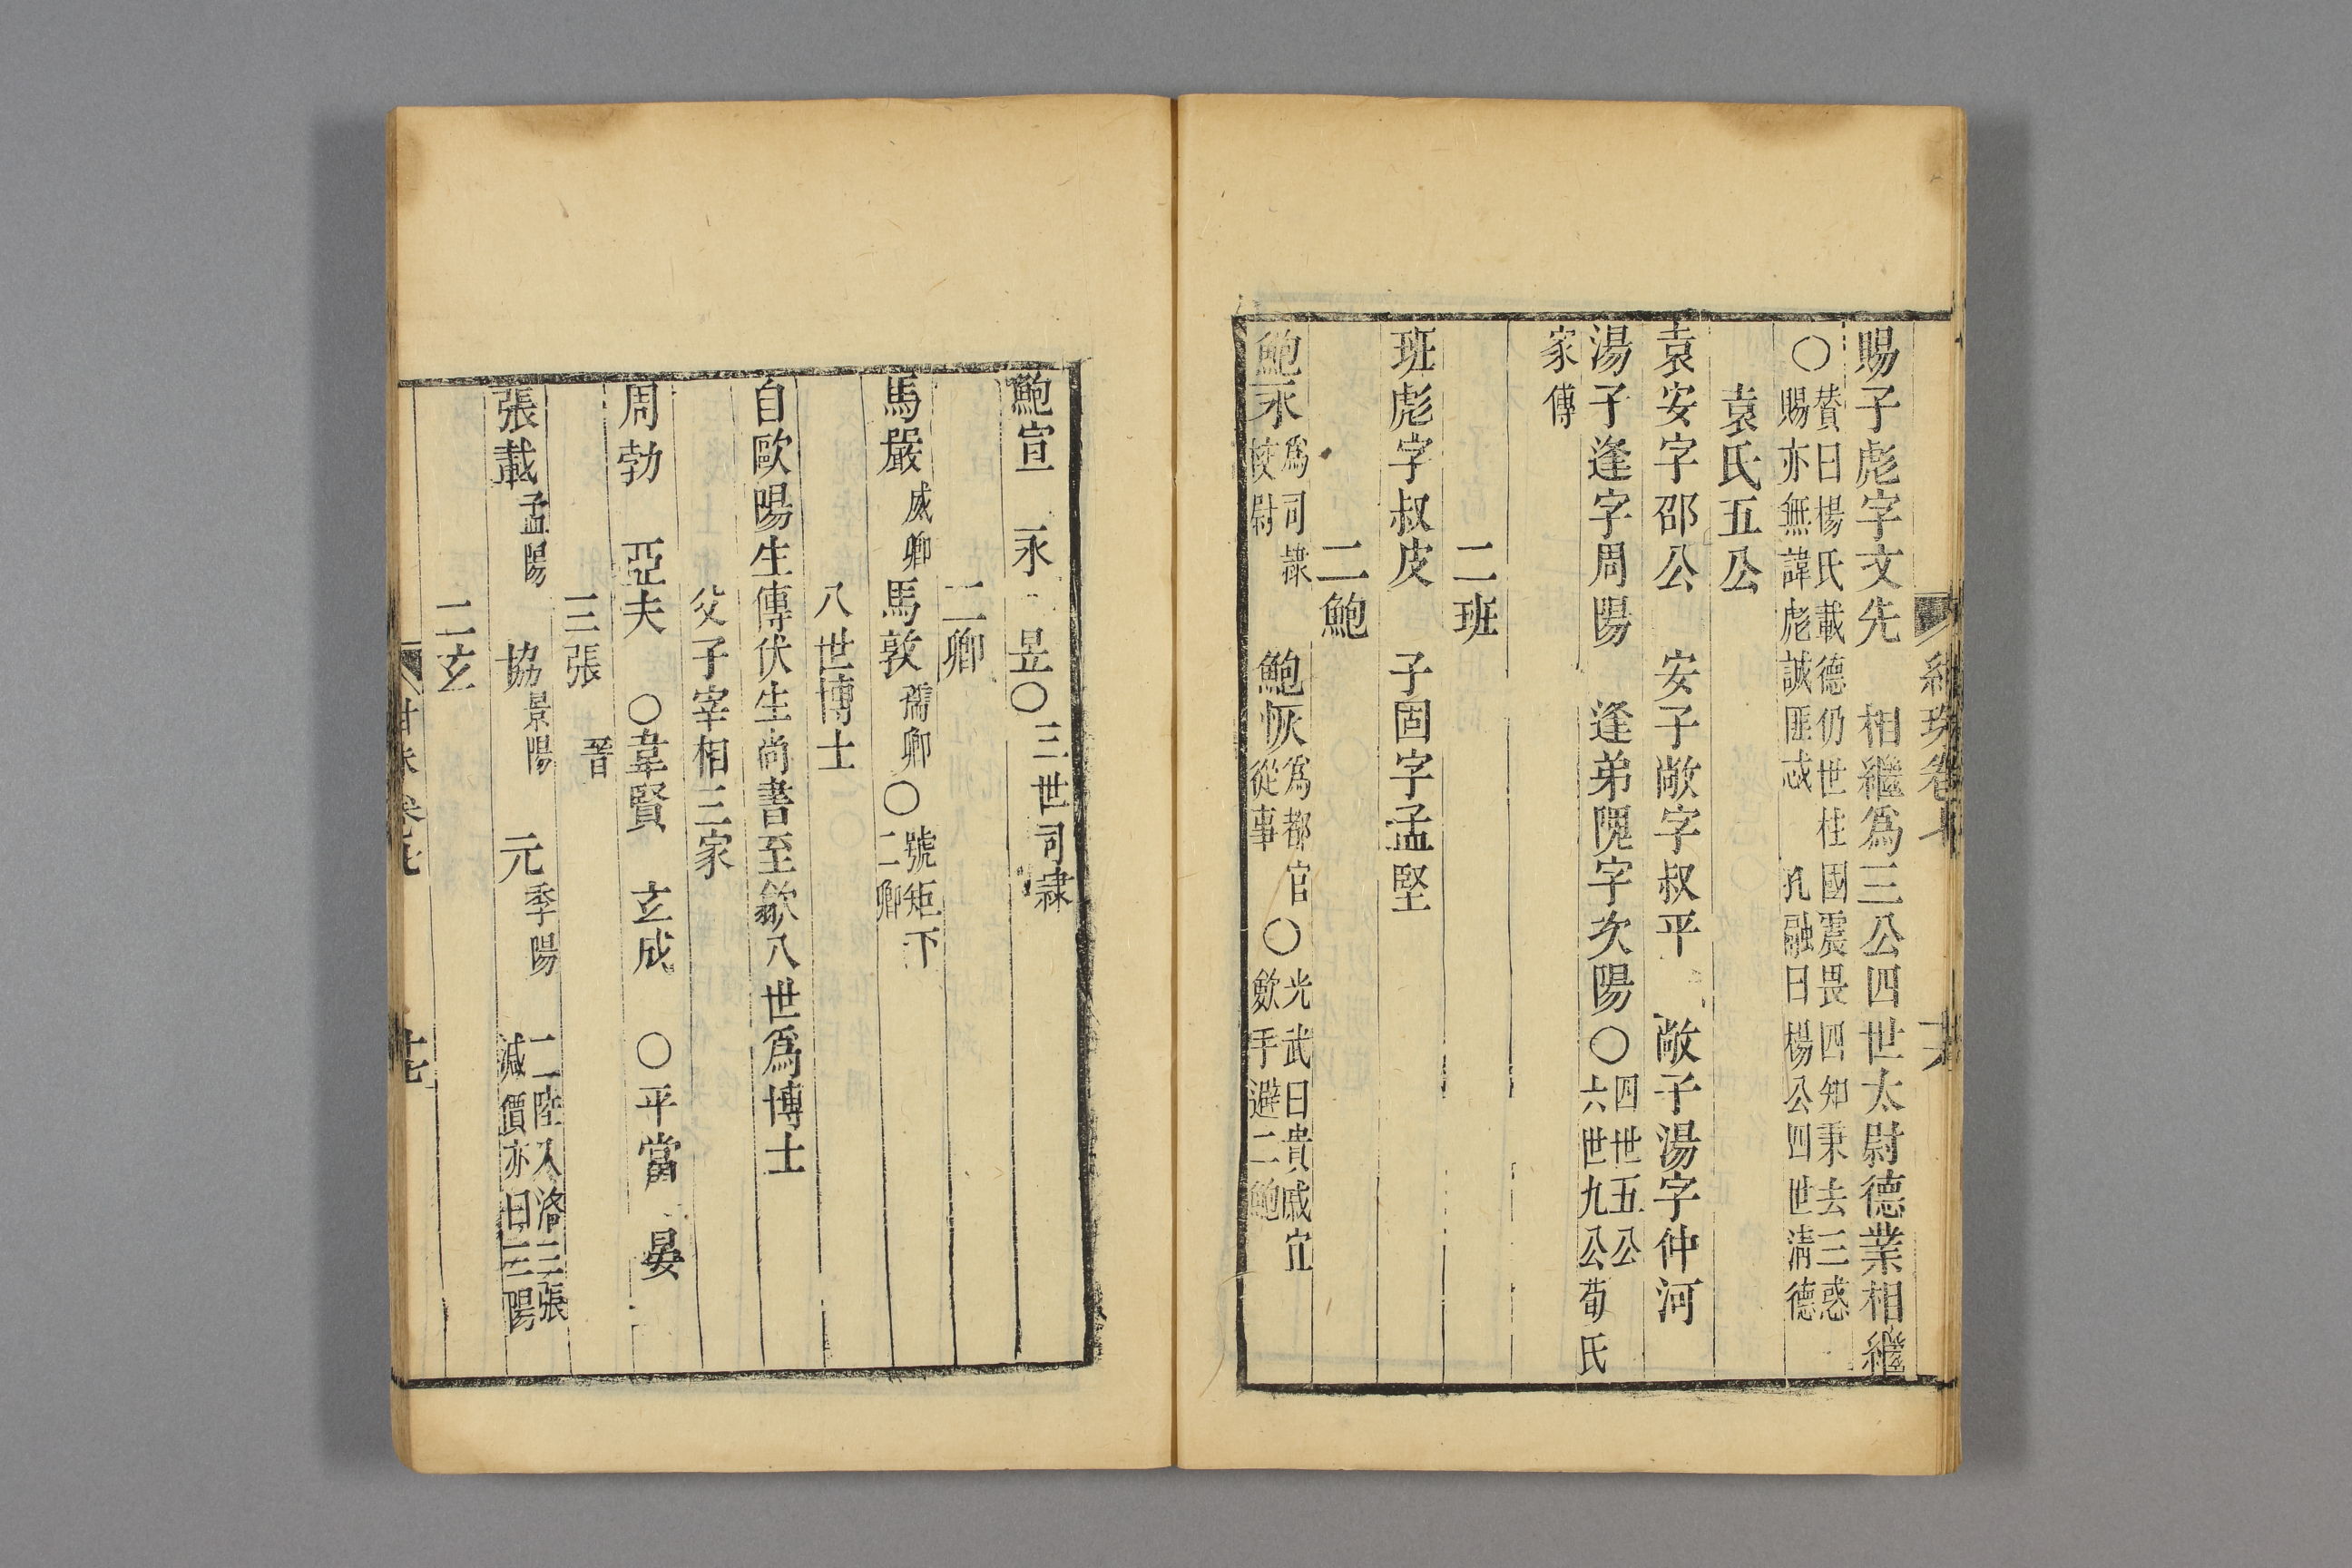 賜子彪字文先 相繼爲三公四世太尉德業相繼
○贊曰楊氏載德仍世柱國震畏四知秉去三惑
賜亦無諱彪誠匪忒 孔融曰楊公四世淸德
袁氏五公
袁安字邵公 安子敞字叔平 敞子湯字仲河
湯子逢字周陽 逢弟隗字次陽○四世五公
六世九公荀氏
家傳
二班
班彪字叔皮 子固字孟堅
二鮑
鮑永爲司隷校尉 鮑恢爲都官從事○光武曰貴戚宜
歛手避二鮑
鮑宣 永 昱○三世司隷
二卿
馬嚴威卿馬敦孺卿○號矩下
二卿
八世博士
自歐陽生傳伏生尚書至歙八世爲博士
父子宰相三家
周勃 亞夫 ○韋賢 玄成 ○平當 晏
三張 晉
張載孟陽 協景陽 元季陽 二陸入洛三張
減價亦曰三陽
二玄